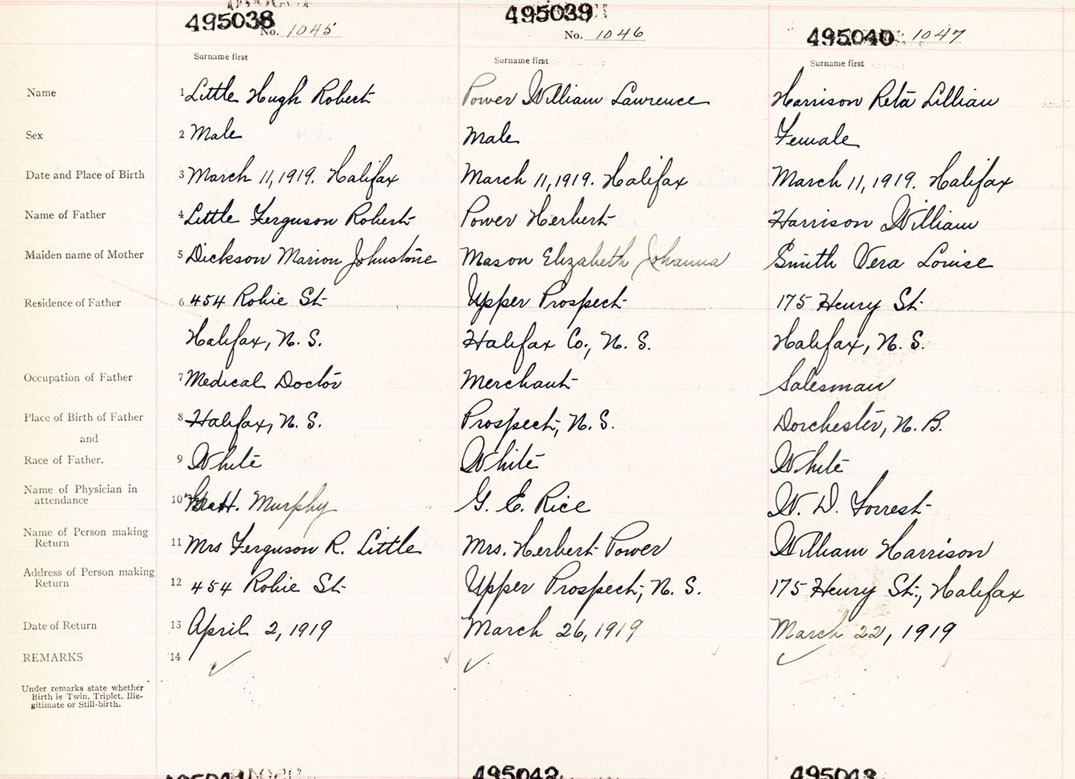 495038 No. 1045
Surname first
495039 No. 1046
Surname first
495040 1047
Surname first
Name 1 Little Hugh Robert Power William Lawrence Harrison Reta Lillian
Sex 2 Male Male Female
Date and Place of Birth 3 March 11, 1919. Halifax March 11, 1919. Halifax March 11, 1919. Halifax
Name of Father 4 Little Ferguson Robert Power Herbert Harrison William
Maiden name of Mother 5 Dickson Marion Johnstone Mason Elizabeth Johanna Smith Vera Louise
Residence of Father 6 454 Robie St. Upper Prospect 175 Henry St.
Halifax, N. S. Halifax Co., N. S. Halifax, N. S.
Occupation of Father 7 Medical Doctor Merchant Salesman
Place of Birth of Father 8 Halifax, N. S. Prospect, N. S. Dorchester, N. B.
and
Race of Father. 9 White White White
Name of Physician in
attendance 10 H. Murphy G. E. Rice W. D. Forrest
Name of Person making
Return 11 Mrs Ferguson R. Little Mrs. Herbert Power William Harrison
Address of Person making
Return 12 454 Robie St. Upper Prospect, N. S. 175 Henry St., Halifax
Date of Return 13 April 2, 1919 March 26, 1919 March 22, 1919
REMARKS 14
Under remarks state whether
Birth is Twin, Triplet, Ille-
gitimate or Still-birth.
495042